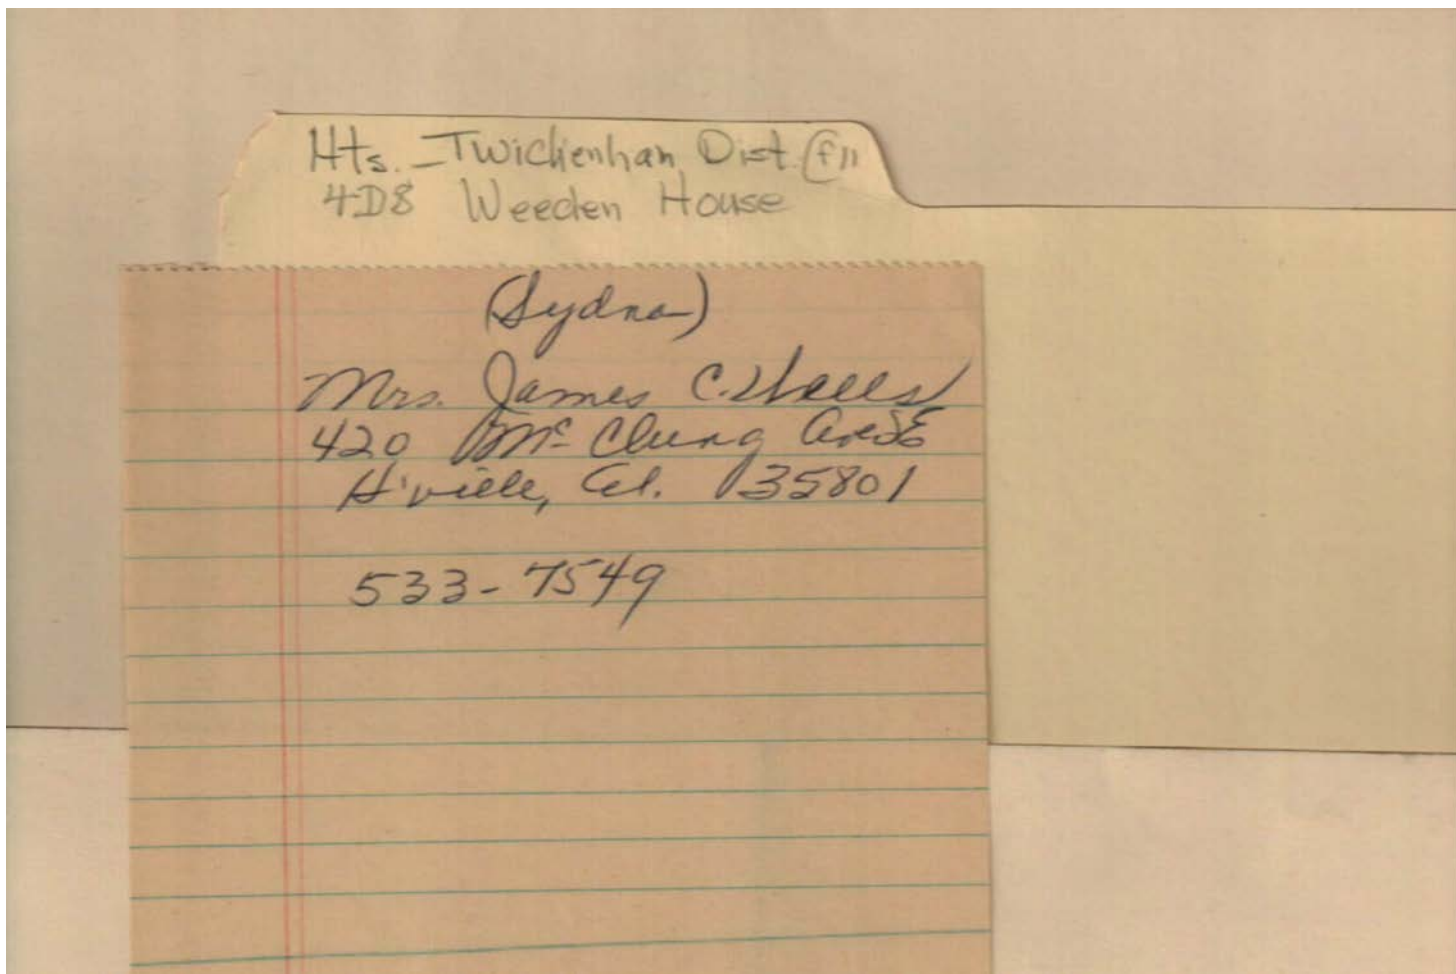 Hts. - Twichenhan Dist. f11
4D8 Weeden House
(Sydna)
Mrs. James C.
420 Mc Clung Ave SE
H'ville, Al. 35801
533-7549